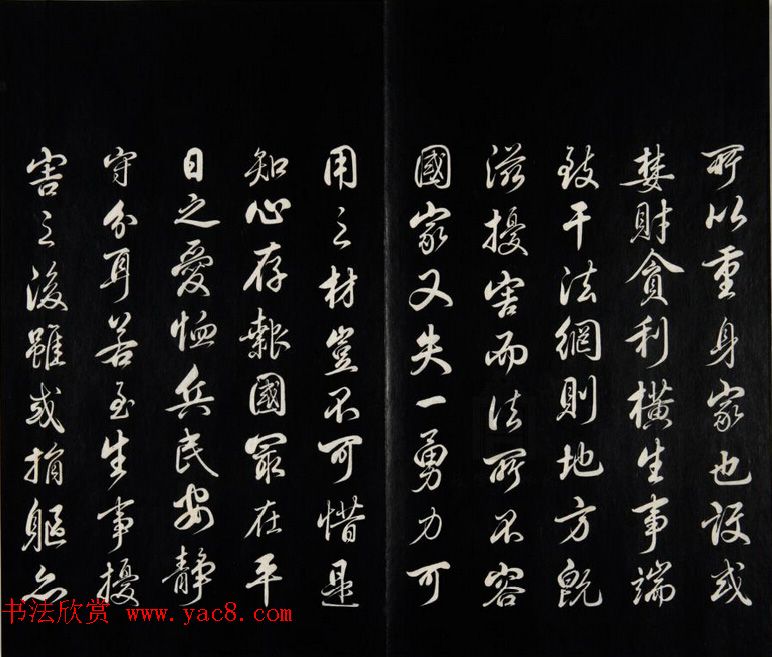 所以重身家也设或
婪財貪利橫生事端
致干法網則地方既
滋擾害而法所不容
國家又失一勇力可
用之材豈不可惜是
知心存報國密在平
日之愛恤兵民安靜
守分耳若至生事擾
害之後雖或捐軀亦
书法欣赏 www.yac8.com